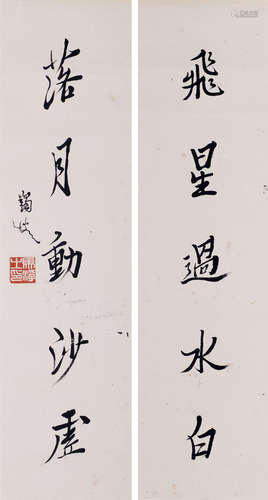 飛星過水白
落月動沙虛